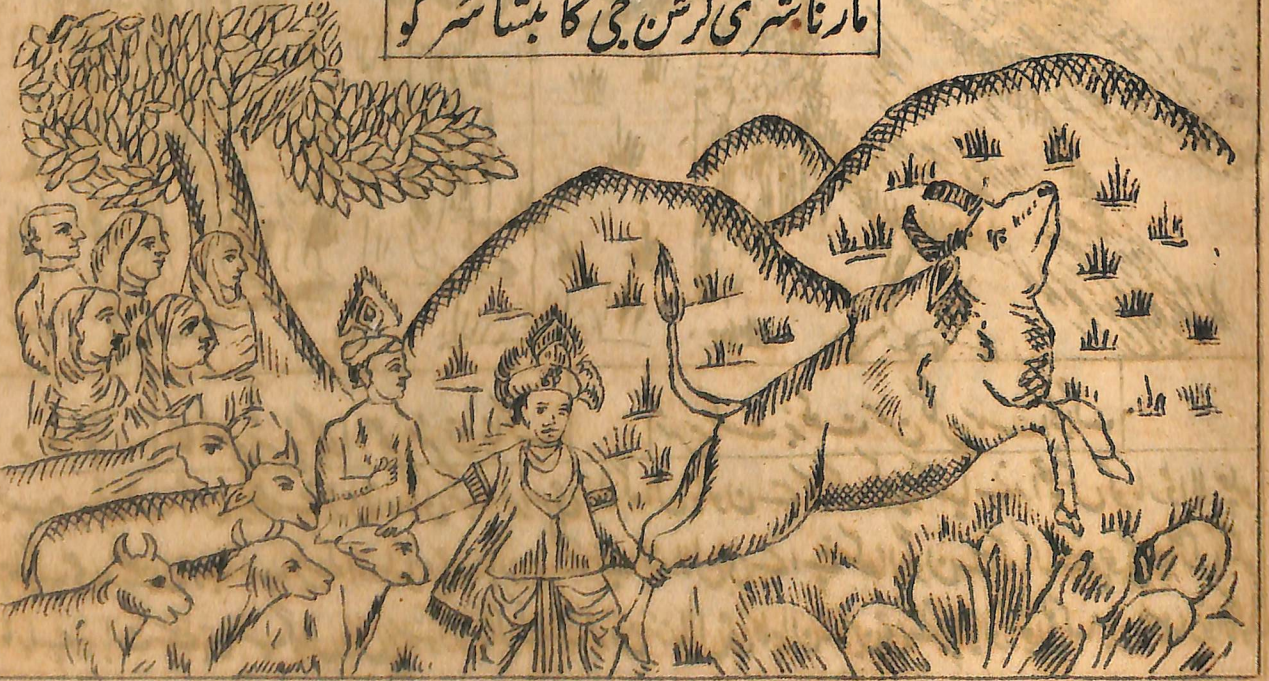 مارنا شری کرشن جی کا بتسا سر کو